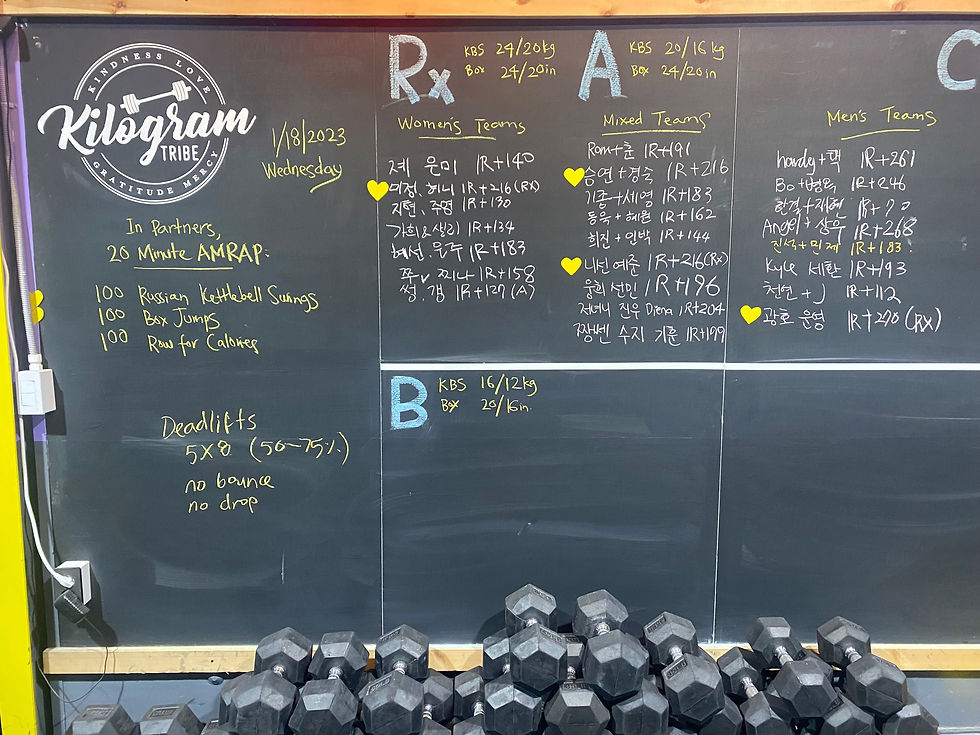 KINDNESS LOVE
Kilogram
TRIBE
GRATITUDE MERCY
1/18/2023
Wednesday
In Partners,
20 Minute AMRAP:
100 Russian Kettlebell Swings
100 Box Jumps
100 Row for Calories
Deadlifts
5X8 (50-75%)
no bounce
no drop
Rx
KBS 24/20kg
Box 24/20in
Women's Teams
은미 1R+140
미정, 허니 1R+216 (RX)
지현, 주영 1R+130
1R+134
혜선, 은주 1R+183
찌나 1R+158
썽, 갱 1R+127 (A)
A
KBS 20/16kg
Box 24/20in
Mixed Teams
Rom+춘 1R+191
승연+경숙 1R+216
기종+세영 1R+183
동욱+혜원 1R+162
희진+인박 1R+144
니선 예준 1R+216(Rx)
웅희 선민 1R+196
저너니 진우 Diena 1R+204
짱벤 수지 기훈 1R+179
C
Men's Teams
howdy+핵 1R+261
Bo+병욱 1R+246
한결+재현
Angel+상우 1R+268
진석+민제 1R+183
Kyle 세환 1R+193
천연+J 1R+112
광호 운영 1R+270 (RX)
B
KBS 16/12kg
Box 20/16in.